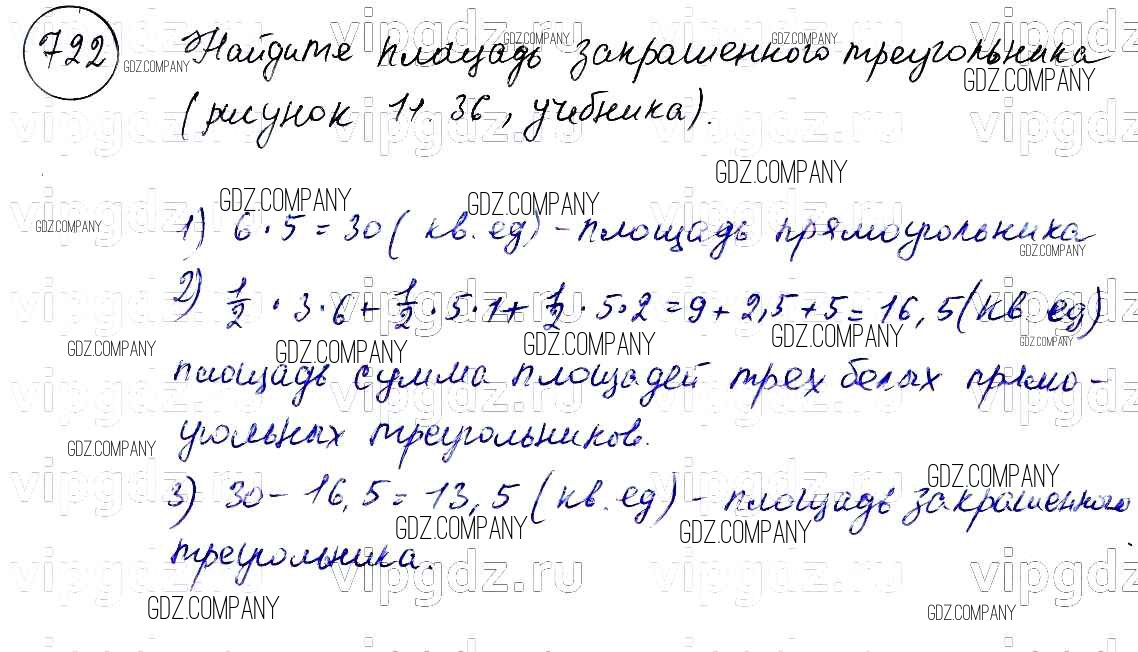 722 Найдите площадь закрашенного треугольника
(рисунок 11.36, учебника).
1) 6 · 5 = 30 (кв. ед) - площадь прямоугольника
2) 1/2 · 3 · 6 + 1/2 · 5 · 1 + 1/2 · 5 · 2 = 9 + 2,5 + 5 = 16,5 (кв. ед)
площадь сумма площадей трех белых прямо-
угольных треугольников.
3) 30 - 16,5 = 13,5 (кв. ед) - площадь закрашенного
треугольника.
GDZ.COMPANY
vipgdz.ru